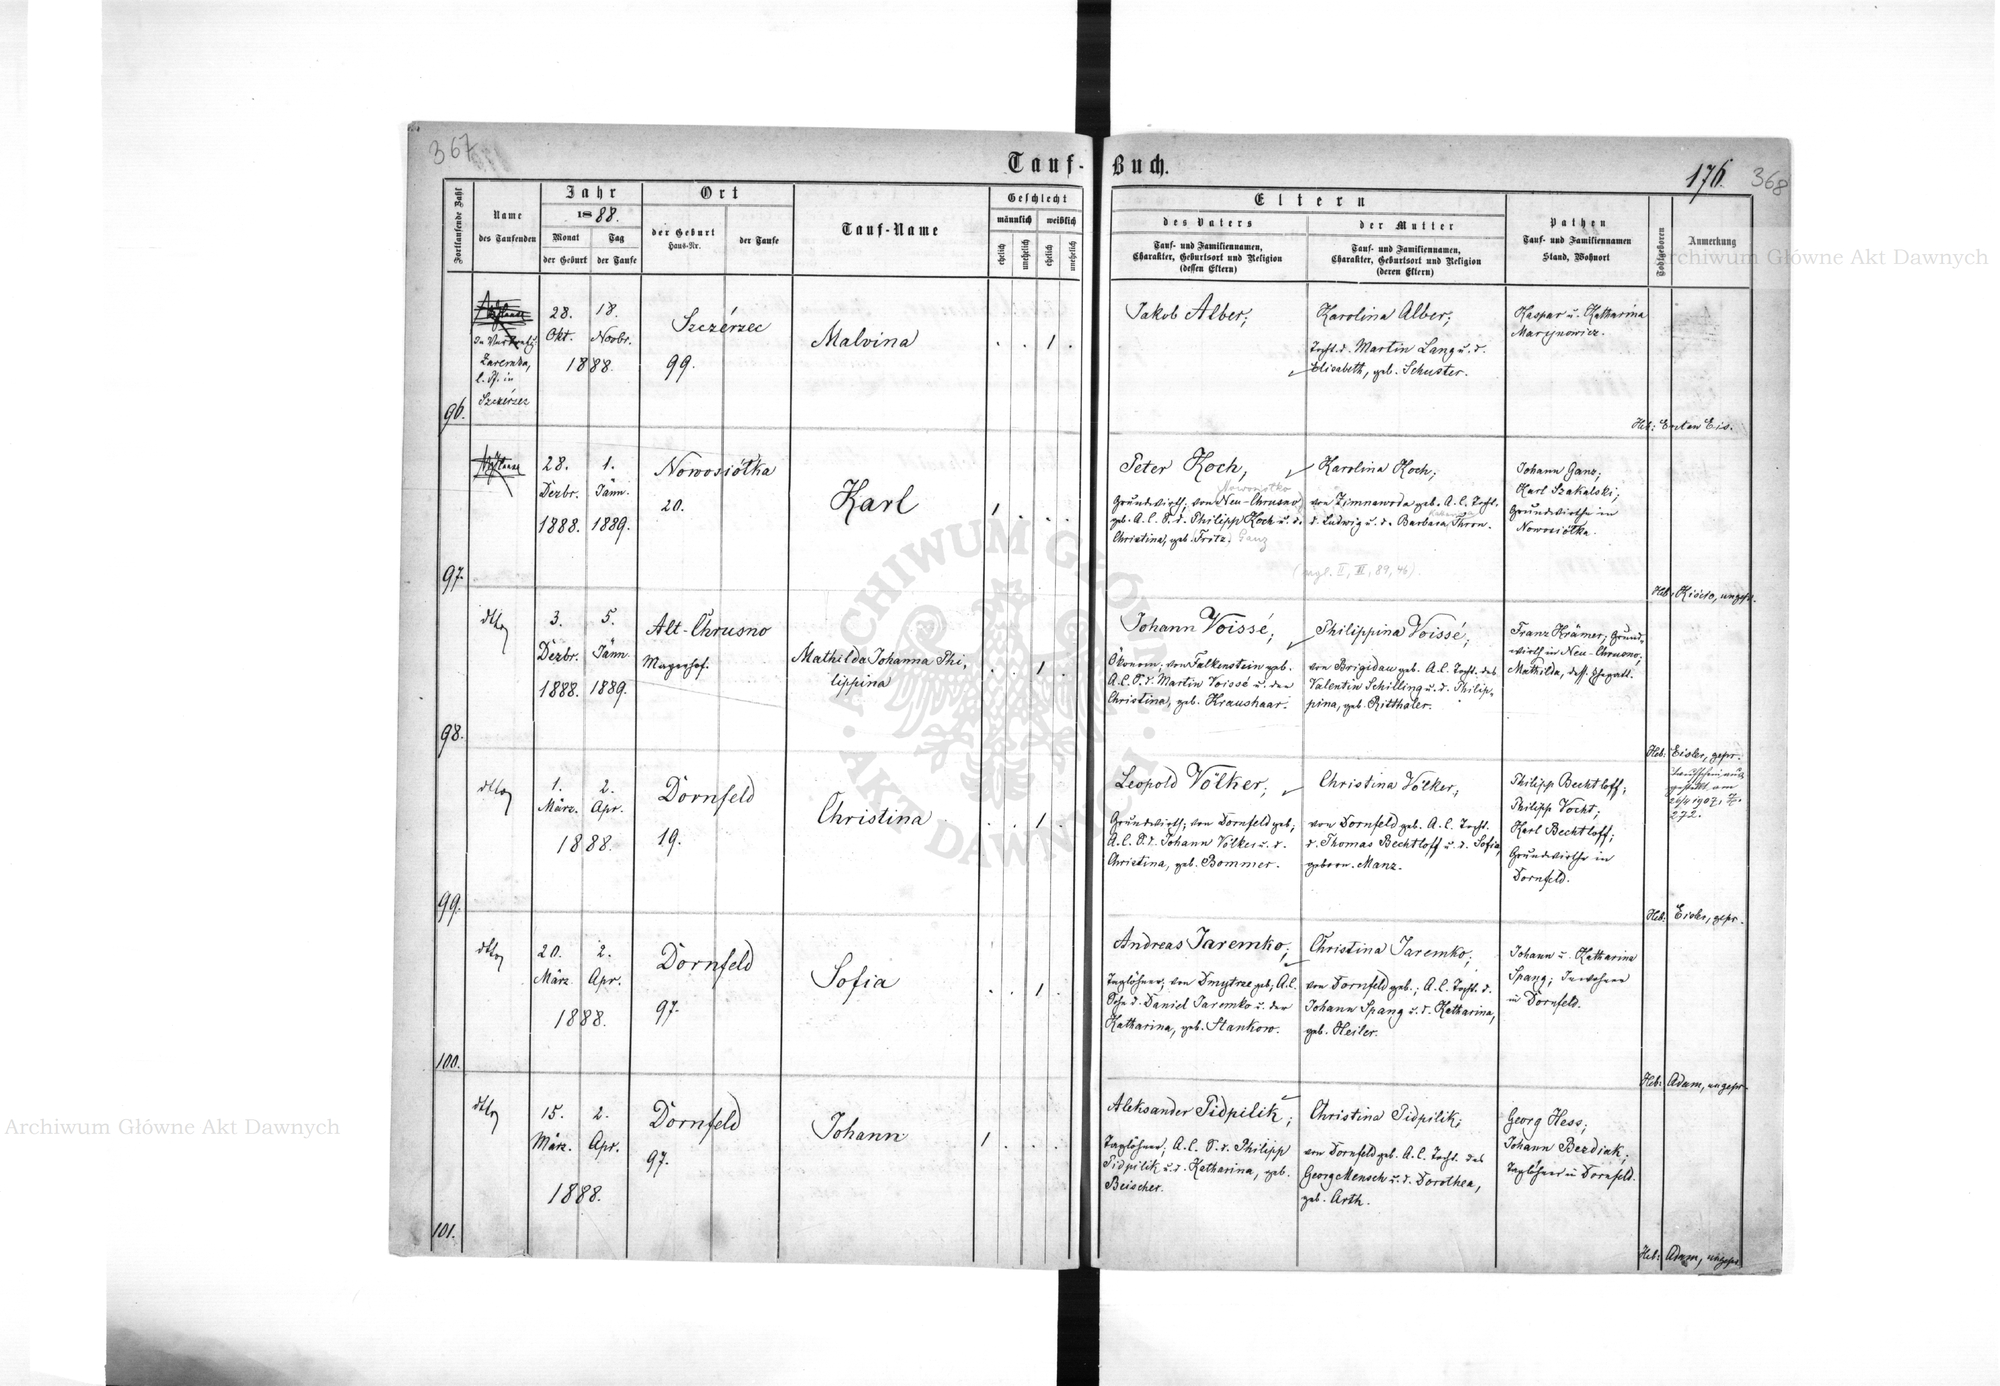 367
Tauf-Buch.
176.
368
Fortlaufende Zahl
Name
des Taufenden
Jahr
1888.
Monat
der Geburt
Tag
der Taufe
Ort
der Geburt
Haus-Nr.
der Taufe
Tauf-Name
Geschlecht
männlich
weiblich
ehelich
unehelich
ehelich
unehelich
Eltern
des Vaters
Tauf- und Familiennamen,
Charakter, Geburtsort und Religion
(dessen Eltern)
der Mutter
Tauf- und Familiennamen,
Charakter, Geburtsort und Religion
(deren Eltern)
Pathen
Tauf- und Familiennamen
Stand, Wohnort
Todtgeboren
Anmerkung
96.
Szczérzec
28.
Okt.
18.
Novbr.
1888.
Szczérzec
99.
Malvina
1
Jakob Alber;
Karolina Alber;
Tocht. d. Martin Lang u. d.
Elisabeth, geb. Schuster.
Kaspar u. Katharina
Marynowicz.
Heb:
97.
28.
Dezbr.
1888.
1.
Jänn.
1889.
Nowosiółka
20.
Karl
1
Peter Koch,
Nowosiółka
Grundwirth, von Neu-Chrusno
geb. A. C. S. d. Philipp Koch u. d.
Christina, geb. Fritz. Ganz
Karolina Koch;
von Zimnawoda geb. A. C. Tocht.
d. Ludwig u. d. Barbara Thron.
Johann Ganz;
Karl Szakalski;
Grundwirthe in
Nowosiółka.
Heb:
98.
dtto
3.
Dezbr.
1888.
5.
Jänn.
1889.
Alt-Chrusno
Mayerhof.
Mathilda Johanna Phi-
lippina
1
Johann Voissé;
Ökonom, von Falkenstein geb.
A. C. S. d. Martin Voissé u. der
Christina, geb. Kraushaar.
Philippina Voissé;
von Brigidau geb. A. C. Tocht. des
Valentin Schilling u. d. Philip-
pina, geb. Ritthaler.
Franz Krämer; Grund-
wirth in Neu-Chrusno;
Mathilda, dess. Ehegatt.
Heb: Eisler, gepr.
99.
dtto
1.
März.
2.
Apr.
1888.
Dornfeld
19.
Christina
1
Leopold Völker;
Grundwirth; von Dornfeld geb;
A. C. S. d. Johann Völker u. d.
Christina, geb. Bommer.
Christina Völker;
von Dornfeld geb. A. C. Tocht.
d. Thomas Bechtloff u. d. Sofia,
geborn. Manz.
Philipp Bechtloff;
Philipp Vocht;
Karl Bechtloff;
Grundwirthe in
Dornfeld.
272.
Heb: Eisler, gepr.
100.
dtto
20.
März
2.
Apr.
1888.
Dornfeld
97.
Sofia
1
Andreas Jaremko;
Taglöhner; von Dmytrze geb; A. C.
Sohn d. Daniel Jaremko u. der
Katharina, geb. Stankow.
Christina Jaremko;
von Dornfeld geb.; A. C. Tocht. d.
Johann Spang u. d. Katharina,
geb. Heiler.
Johann u. Katharina
Spang; Inwohner
in Dornfeld.
Heb: Adam, ungepr.
101.
dtto
15.
März.
2.
Apr.
1888.
Dornfeld
97.
Johann
1
Aleksander Pidpilik;
Taglöhner, A. C. S. d. Philipp
Pidpilik u. d. Katharina, geb.
Beischer.
Christina Pidpilik;
von Dornfeld geb. A. C. Tocht. des
Georg Mensch u. d. Dorothea,
geb. Arth.
Georg Hess;
Johann Bezdiak;
Taglöhner in Dornfeld.
Heb: Adam, ungepr.
Archiwum Główne Akt Dawnych
Archiwum Główne Akt Dawnych
ARCHIWUM GŁÓWNE · AKT DAWNYCH ·